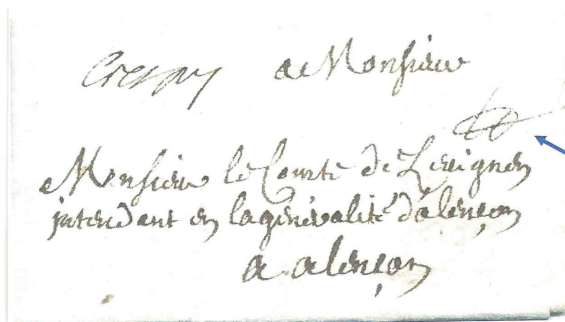 Crespy a Monsieur
Monsieur le Comte de Levignen
intendant en la généralité d'alençon
a alençon